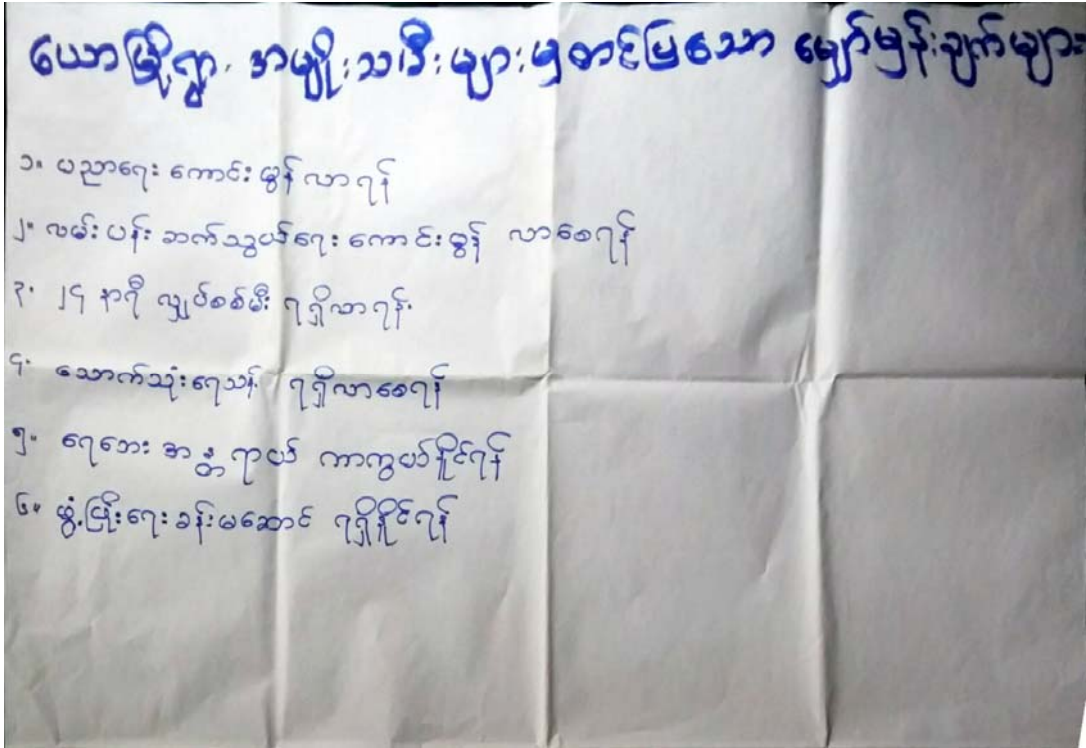 ယောမြို့ရွာ အမျိုးသမီးများမှတင်ပြသော မျှော်မှန်းချက်များ
၁။ ပညာရေး ကောင်းမွန် လာရန်
၂။ လမ်းပန်း ဆက်သွယ်ရေး ကောင်းမွန် လာစေရန်
၃။ ၂၄ နာရီ လျှပ်စစ်မီး ရရှိလာရန်
၄။ သောက်သုံးရေသန့် ရရှိလာစေရန်
၅။ ရေဘေး အန္တရာယ် ကာကွယ်နိုင်ရန်
၆။ ဖွံ့ဖြိုးရေးခန်းမဆောင် ရရှိနိုင်ရန်